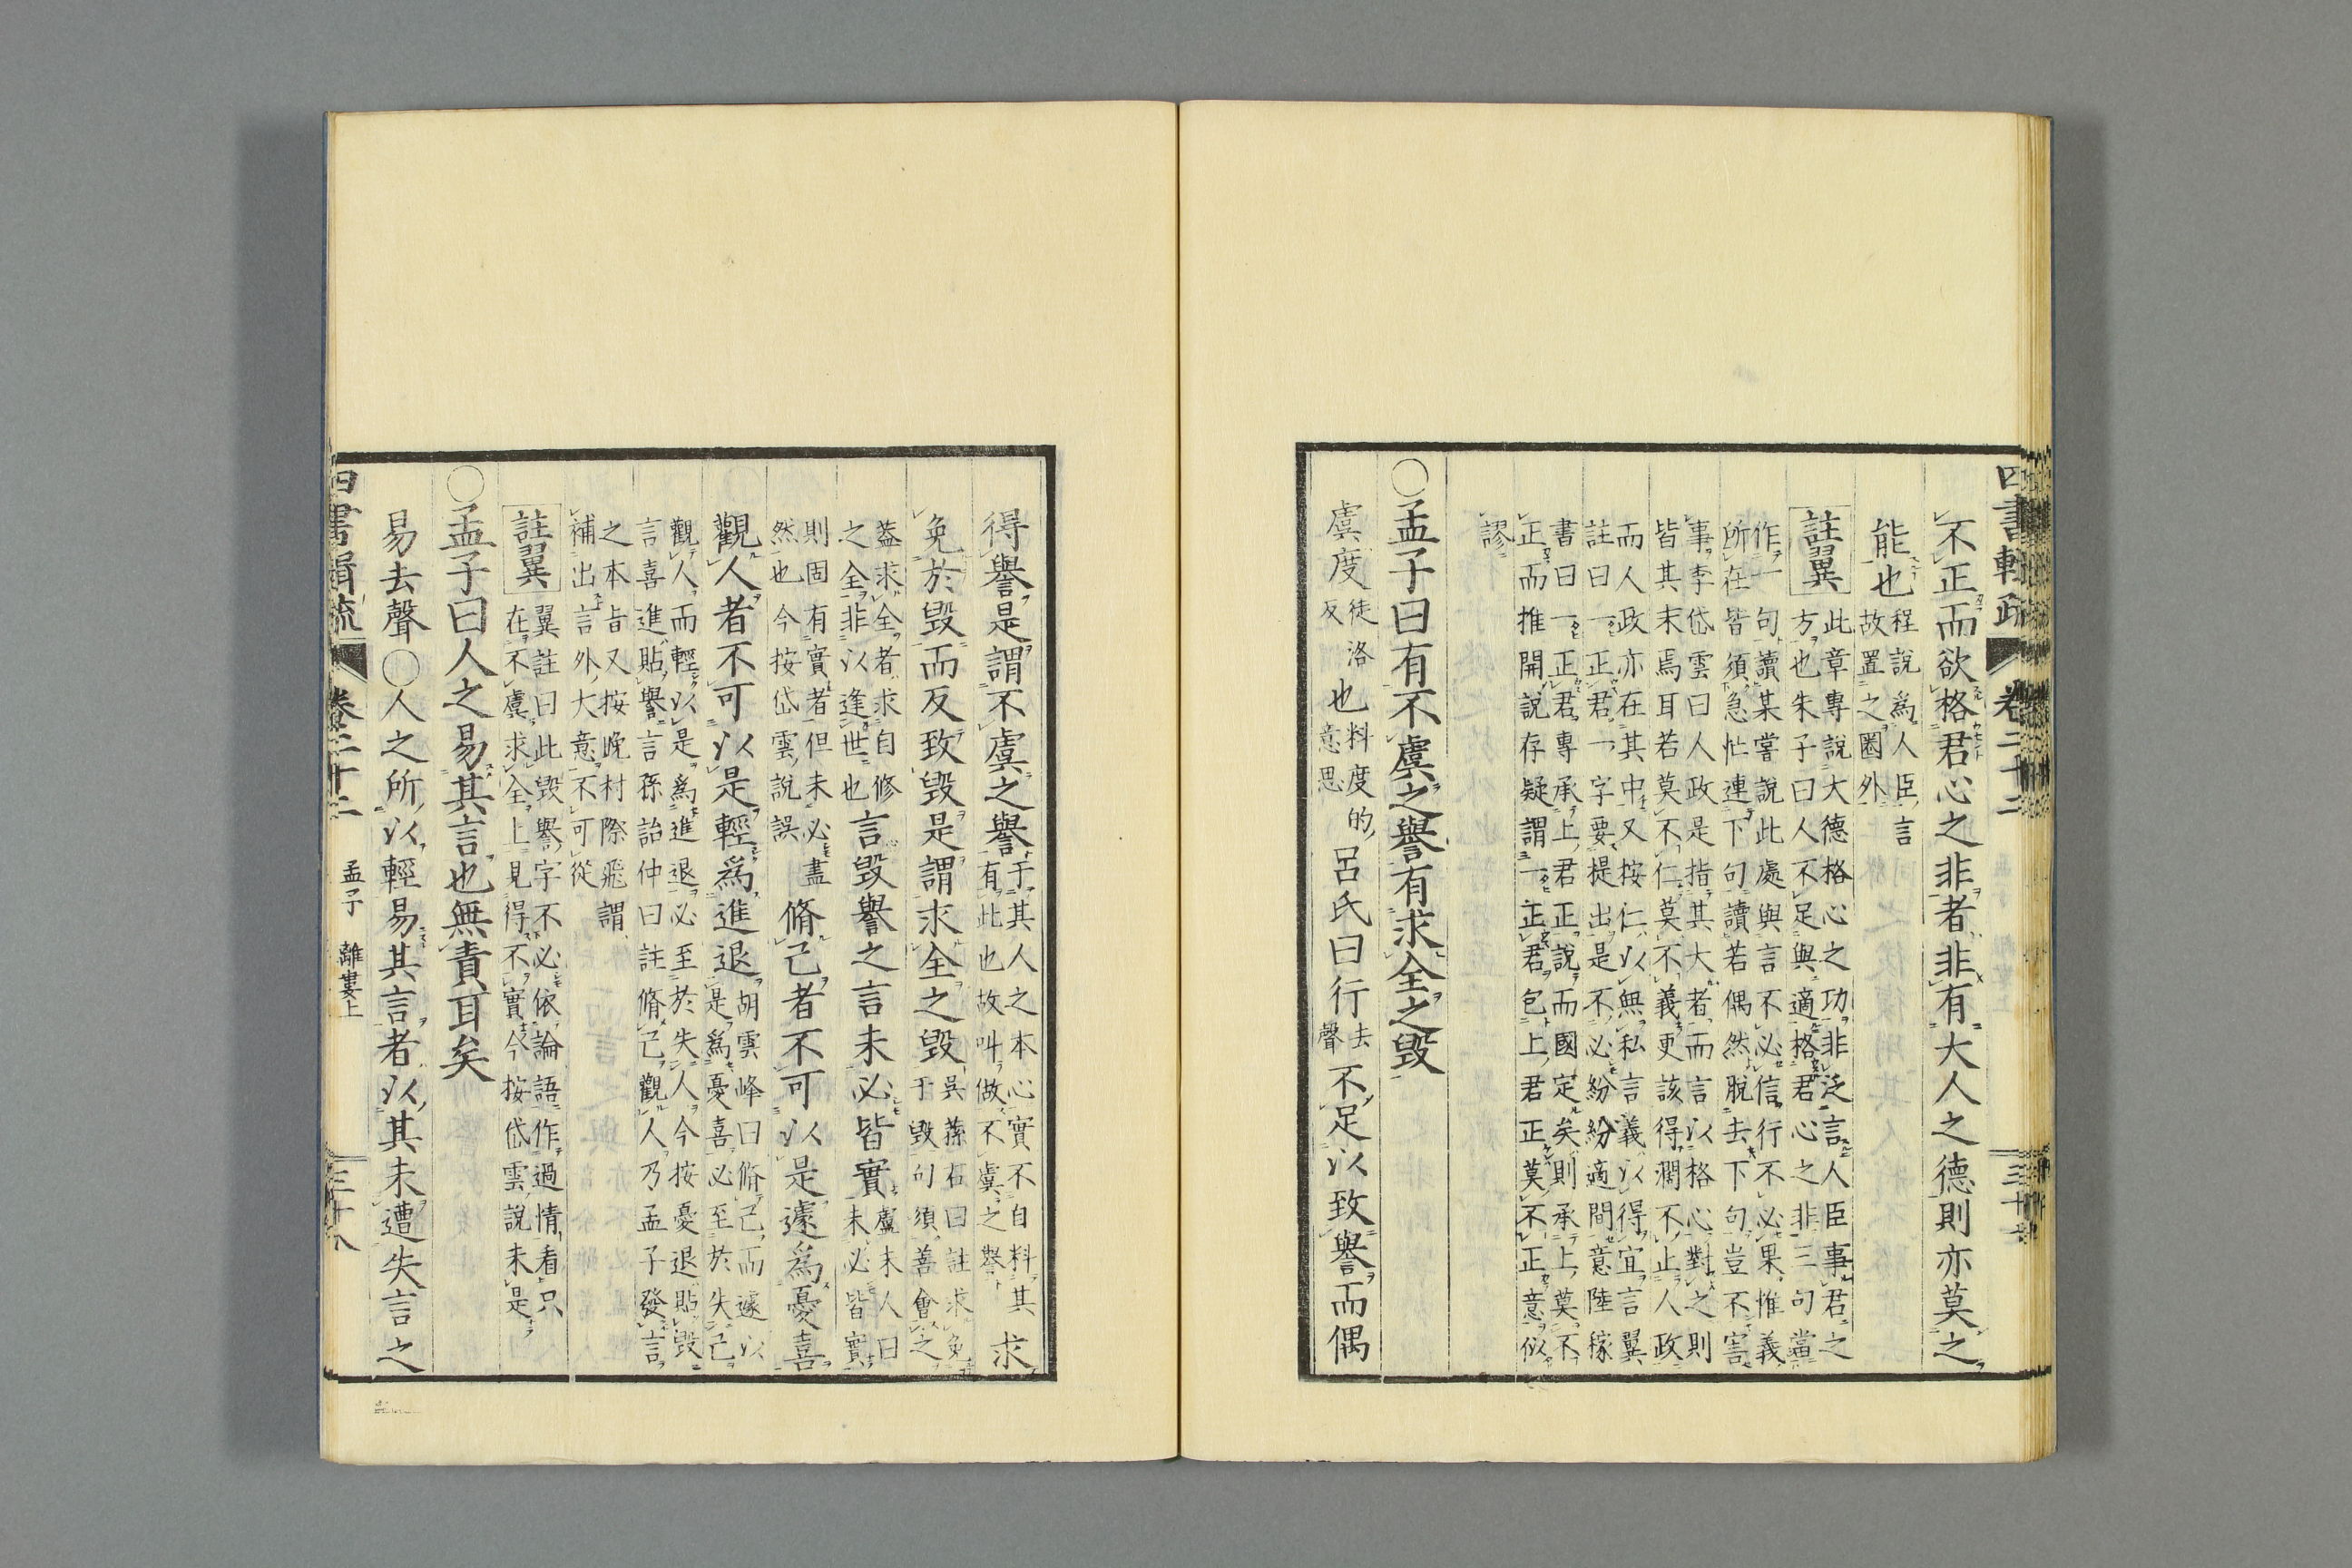 四書輯疏 卷二十二 三十七
不正而欲格君心之非者非有大人之德則亦莫之
能也
程說爲人臣言
故置之圈外
註翼
此章專說大德格心之功非泛言人臣事君之
方也朱子曰人不足與適格君心之非三句當
作一句讀某嘗說此處與言不必信行不必果惟義
所在皆須急忙連下句讀若偶然脫去下句豈不害
事李岱雲曰人政是指其大者而言以格心對之則
皆其末焉耳若莫不仁莫不義更該得濶不止人政
而人政亦在其中又按仁以無私言義以得宜言翼
註曰一正君一字要提出是不必紛紛適間意陸稼
書曰一正君專承上君正說而國定矣則承上莫不
正而推開說存疑謂一正君包上君正莫不正意似
謬
○孟子曰有不虞之譽有求全之毀
虞度
徒洛
反
也
料度的
意思
呂氏曰行
去
聲
不足以致譽而偶
得譽是謂不虞之譽
于其人之本心實不自料其
有此也故叫做不虞之譽
求
免於毀而反致毀是謂求全之毀
吳蓀右曰註求免
于毀句須善會之
蓋求全者求自修
之全非以逢世也
言毀譽之言未必皆實
盧未人曰
未必皆實
則固有實者但未必盡
然也今按岱雲說誤
脩己者不可以是遽爲憂喜
觀人者不可以是輕爲進退
胡雲峰曰脩己而遽以
是爲憂喜必至於失己
觀人而輕以是爲進退必至於失人今按憂退貼毀
言喜進貼譽言孫詒仲曰註脩己觀人乃孟子發言
之本旨又按晚村際飛謂
補出言外大意不可從
註翼
翼註曰此毀譽字不必依論語作過情看只
在不虞求全上見得不實今按岱雲說未是
○孟子曰人之易其言也無責耳矣
易去聲○人之所以輕易其言者以其未遭失言之
四書輯疏 卷二十二 孟子 離婁上 三十八